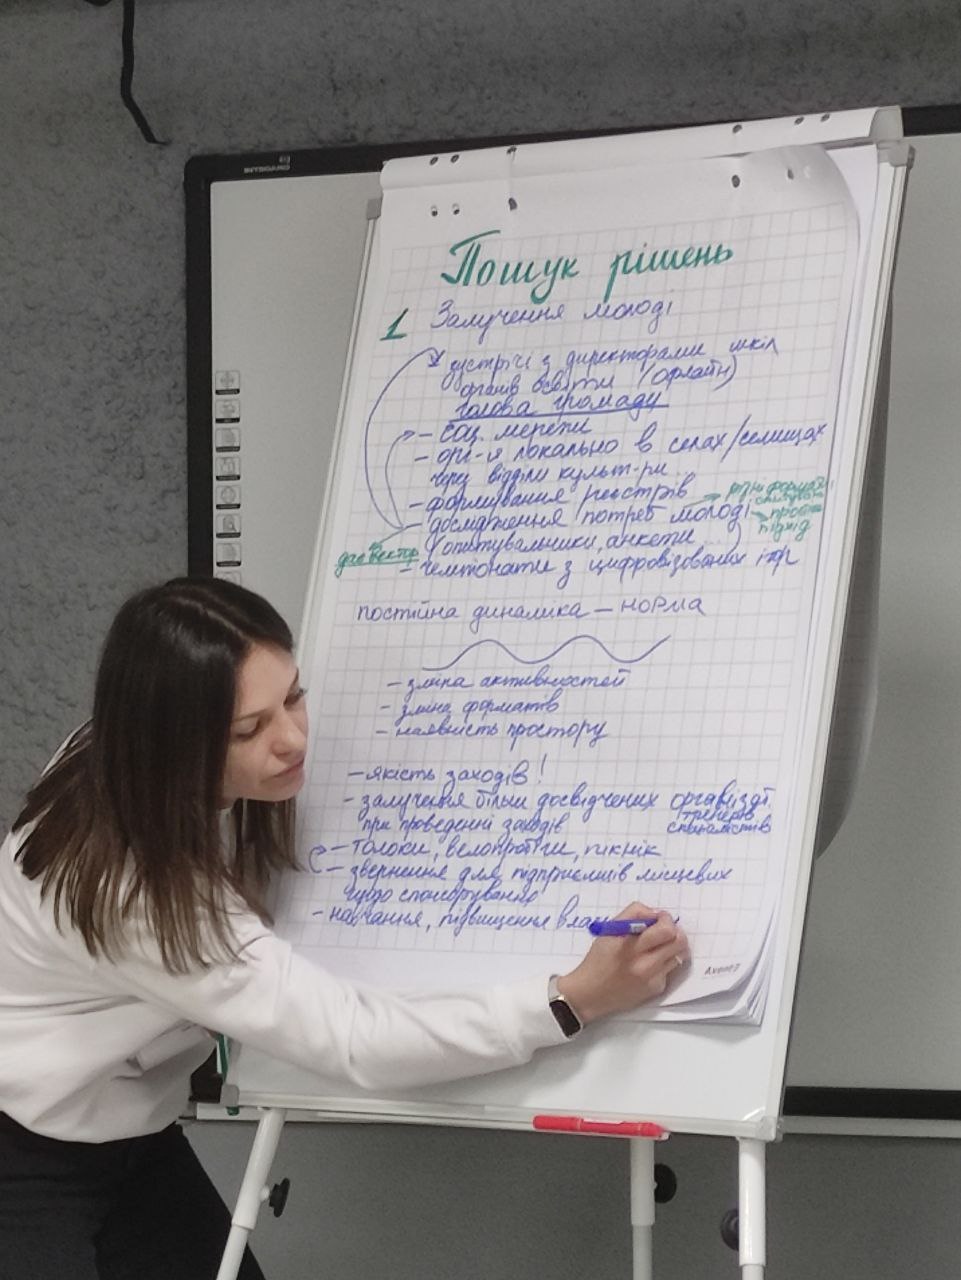 INTBOARD
Пошук рішень
1 Залучення молоді
зустрічі з директорами шкіл
органів освіти (офлайн)
голова громади
– соц. мережі
– орг-я локально в селах/селищах
через відділи культ-ри
– формування реєстрів
різні формати
– дослідження потреб молоді
підхід
(опитувальники, анкети...)
– чемпіонати з цифровізованих ігр
постійна динаміка – норма
– зміна активностей
– зміна форматів
– наявність простору
– якість заходів!
– залучення більш досвідчених
при проведенні заходів
тренерів
спеціалістів
– толоки, велопробіги, пікнік
– звернення для підприємців місцевих
щодо спонсорування
– навчання, підвищення
Axent